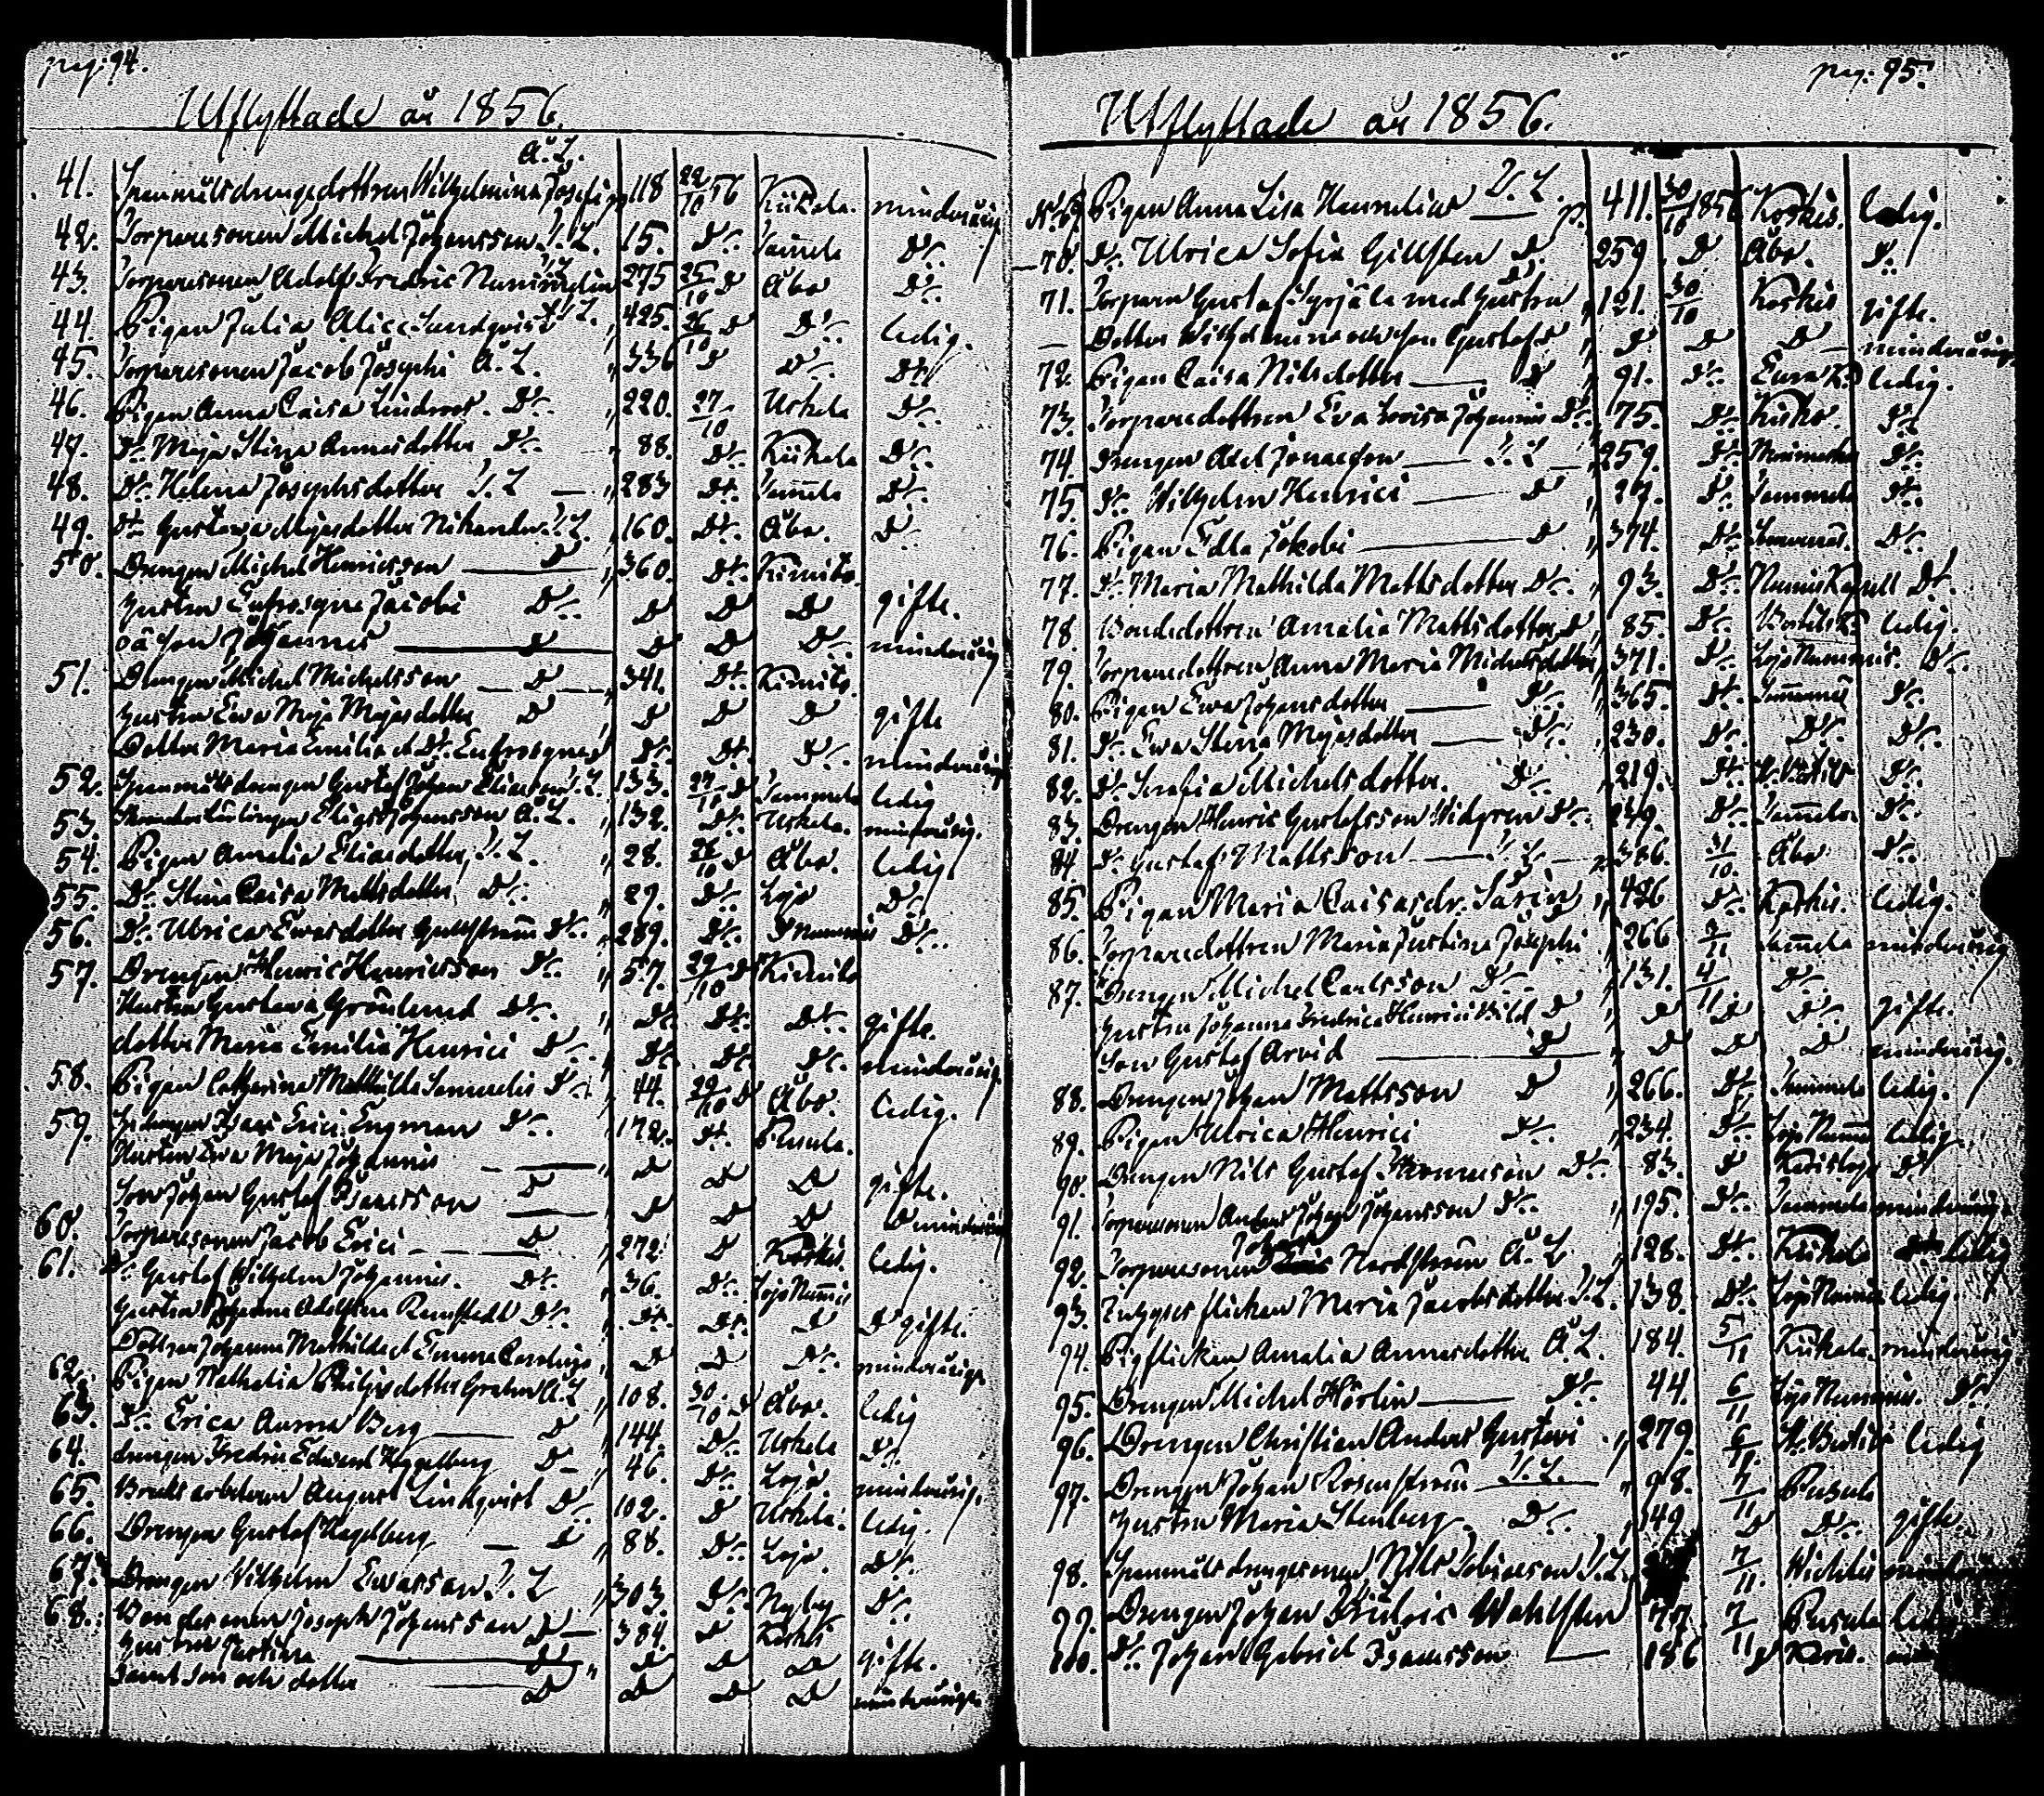 pag: 94.
Utflyttade år 1856.
Å. L.
41. Spanmålsdrengedottren Wilhelmina Josephi 118 22/10 56 Kiikala. minderårig
42. Torparesonen Michel Johansson Y. L. 15. Do. Sammela Do.
43. Torparesonen Adolf Fredric Numelin Y. L. 275 25/10 D Åbo Do.
44. Pigan Julia Alice Sundqvist Y. L. 425. 26/10 D Do. ledig.
45. Torparesonen Jacob Josephi Å. L. 336 D Do. Do.
46. Pigan Anna Caisa Lindroos. Do. 220. 27/10 Uskela Do.
47. Do. Maja Stina Annasdotter Do. 88. Do. Kiikala Do.
48. Do. Helena Josephsdotter Y. L 283 Do. Sammela Do.
49. Do. Gustava Majasdotter Nikander Y. L. 160. Do. Åbo. D.
50. Drengen Michel Henricsson D 360. Do. Kimito.
Hustru Eufrosyna Jacobi Do. D D D gifte.
o s̄ Son Johannes D D D Do. minderårig
51. Drengen Michel Michelsson D 341. Do. Kimito.
Hustru Ewa Maja Majasdotter D D D D gifte
Dotter Maria Emilia o Do. Eufrosyna D Do. Do. Do. minderårig
52. Spanmålsdrengen Gustaf Johan Eliasson Y. L. 133. 27/10 D Sammela ledig
53. Elias Johansson Å. L. 132. Do. Uskela. minderårig.
54. Pigan Amalia Eliasdotter Y. L. 28. 26/10 D Åbo. ledig.
55. Do. Stina Caisa Mattsdotter Do. 29. Do. Lojo D.
56. Do. Ulrica Ewasdotter Gullström Do. 289. Do. Do.
57. Drengen Henric Henricsson Do. 57. 29/10 D Kimito
Hustru Gustava Grönlund Do. Do. Do. Do. gifte.
dotter Maria Emilia Henrici Do. Do. Do. Do. minderårig
58. Pigan Catharina Mathilda Samuelis Do. 44. 29/10 D Åbo. ledig.
59. Isaac Erici Engman Do. 172. Do. Pusula.
Hustru Ewa Maja Johannis D D D gifte.
Son Johan Gustaf Isacsson D D D D D minderårig
60. Torparesonen Jacob Erici D 272. D Koskis. ledig.
61. Do. Gustaf Wilhelm Johannis. Do. 36. Do. Lojo Nummis
Hustru Johanna Adolfina Renstedt Do. Do. Do. D D gifte.
Döttrar Johanna Mathilda o Emma Carolina D D Do. minderåriga
62. Pigan Nathalia Philipsdotter Å. L 108. 30/10 D Åbo. ledig
63. Do. Erica Anna Berg D 144. Do. Uskela Do.
64. drengen Fredric Edvard Hagelberg D 46. Do. Lojo minderårig.
65. Bruksarbetaren August Lindqvist Do. 102. D Uskela. ledig.
66. Drengen Gustaf Hagelberg D 88. Do. Lojo Do.
67. Drengen Wilhelm Ewasson Y. L 303. Do. Nyby Do.
68. Bondesonen Joseph Johansson D 384. D Koskis
Hustru Justina D D D D gifte.
Samt Son och dotter D D D D minderåriga
pag: 95.
Utflyttade år 1856.
No 69 Pigan Anna Lisa Henrelius Y. L. p. 411. 30/10 1856 Koskis. ledig.
70. Do. Ulrica Sofia Gillsten D. 259 D Åbo. D.
71. Torparen Gustaf Syrjälä med Hustru D. 121. 30/10 Koskis gifte.
Dotter Wilhelmina och son Gustaf D D D D minderårig
72. Pigan Caisa Nilsdotter D 91. Do. Eura K. ledig.
73. Torparedottren Eva Lovisa Johannis Do. 75. Do. Kisko. Do.
74. Drengen Axel Jonasson Y. L 259. Do. Do.
75. Do. Wilhelm Henrici D 27. D. Sammela Do.
76. Pigan Edla Jakobi D 374. Do. Somernäs. Do.
77. Do. Maria Mathilda Mattsdotter Do. 93. Do. Nummis Kapell Do.
78 Bondedottren Amalia Mattsdotter D 85. Do. ledig.
79. Torparedottren Anna Maria Michelsdotter 371. Do. Lojo Nummis. Do.
80. Pigan Ewa Johansdotter Do. 365. Do. Do.
81. Do. Ewa Stina Majasdotter Do. 230. Do. Do. Do.
82. Do. Serafia Michelsdotter. Do. 219. Do. Do.
83. Drengen Henric Gustafsson Widgren Do. 249. Do. Sammela. Do.
84. Do. Gustaf Mattsson Y. L. 386. 31/10. Åbo Do.
85. Pigan Maria Caisasdr. Sarin 426 Do. Koskis. ledig.
86. Torparedottren Maria Justina Josephi 266 3/11 Sammela minderårig
87. Drengen Michel Carlsson Do. 131. 4/11 Do.
Hustru Johanna Fredrica Henrici Wild D D D Do. gifte.
Son Gustaf Arvid D D D D minderårig.
88. Drengen Johan Mattsson D 266. Do. Sammela ledig.
89. Pigan Ulrica Henrici Do. 234. Do. Lojo Nummis ledig
90. Drengen Nils Gustaf Hermansson Do. 83. D Karislojo Do.
91. Torparesonen Anders Johan Johansson Do. 195. Do. Sammela minderårig.
92. Torparesonen Johan Nordström Å. L 128. Do. Kiikala ledig
93. Inhyses flickan Maria Jacobsdotter Y. L. 138. Do. Lojo Nummis ledig.
94. Pigflickan Amalia Annasdotter Å. L. 184. 5/11 Kiikala. minderårig.
95. Drengen Michel Hörlin Do. 44. 6/11 Lojo Nummis. Do.
96. Drengen Christian Anders Gustavi 279. 6/11. ledig
97. Drengen Johan Rosenström Y. L. 98. 7/11 Pusula
Hustru Maria Stenberg Do. 349 D Do. gifte.
98. Spanmåls drengesonen Nils Tobiasson Y. L. 7/11. Wichtis
99. Drengen Johan Fridric Wahlsten 77 7/11 Pusula
100. Do. Johan Gabriel Isacsson 186 D Karis.